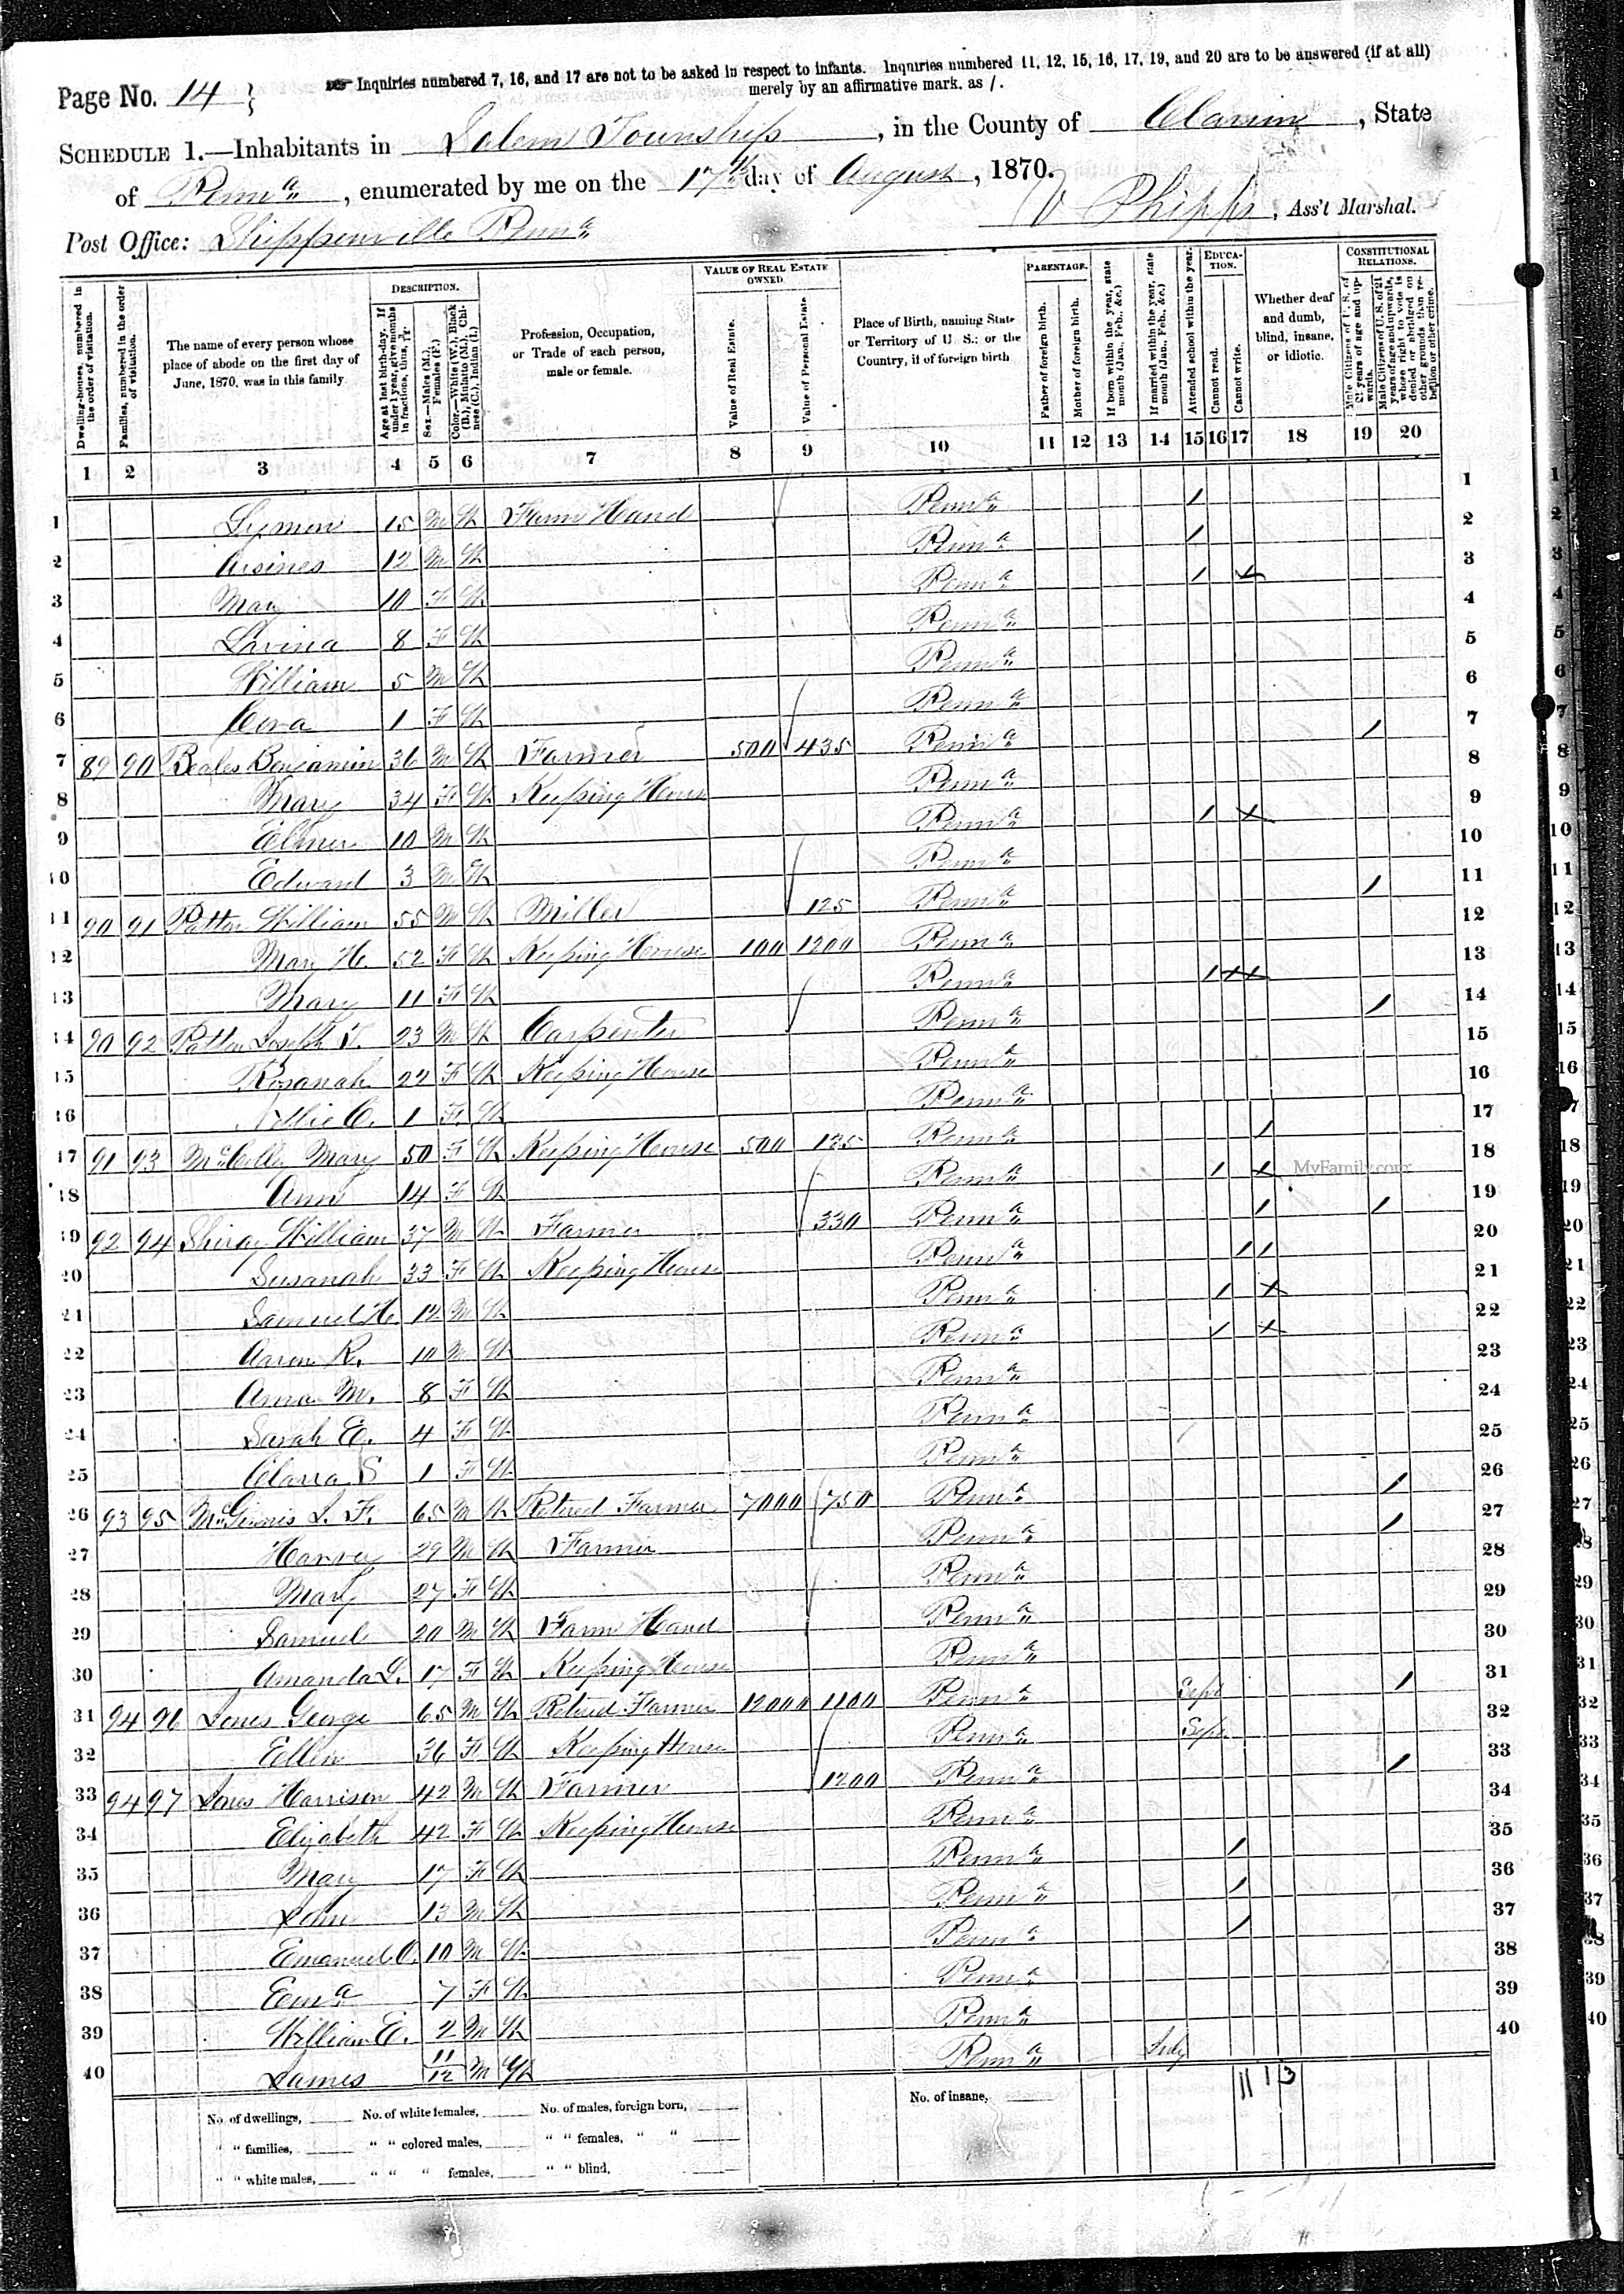 Page No. 14
Inquiries numbered 7, 16, and 17 are not to be asked in respect to infants. Inquiries numbered 11, 12, 15, 16, 17, 19, and 20 are to be answered (if at all)
merely by an affirmative mark, as /.
SCHEDULE 1.—Inhabitants in Salem Township, in the County of Clarion, State
of Penna, enumerated by me on the 17th day of August, 1870.
Post Office: Shippenville Penna
Phipps, Ass't Marshal.
Dwelling-houses, numbered in the order of visitation.
Families, numbered in the order of visitation.
The name of every person whose place of abode on the first day of June, 1870, was in this family.
DESCRIPTION.
Age at last birth-day. If under 1 year, give months in fractions, thus,
Sex.—Males (M.), Females (F.)
Color.—White (W.), Black (B.), Mulatto (M.), Chinese (C.), Indian (I.)
Profession, Occupation, or Trade of each person, male or female.
VALUE OF REAL ESTATE OWNED.
Value of Real Estate.
Value of Personal Estate.
Place of Birth, naming State or Territory of U. S.; or the Country, if of foreign birth
PARENTAGE.
Father of foreign birth.
Mother of foreign birth.
If born within the year, state month (Jan., Feb., &c.)
If married within the year, state month (Jan., Feb., &c.)
Attended school within the year.
EDUCATION.
Cannot read.
Cannot write.
Whether deaf and dumb, blind, insane, or idiotic.
CONSTITUTIONAL RELATIONS.
Male Citizens of U. S. of 21 years of age and upwards.
Male Citizens of U. S. of 21 years of age and upwards, whose right to vote is denied or abridged on other grounds than rebellion or other crime.
1 2 3 4 5 6 7 8 9 10 11 12 13 14 15 16 17 18 19 20
1 Lymen 15 M W Farm Hand Penna / 1
2 12 M W Penna / 2
3 Mary 10 F W Penna / + 3
4 Lavina 8 F W Penna 4
5 William 5 M W Penna 5
6 Cora 1 F W Penna 6
7 89 90 Beales Benjamin 36 M W Farmer 500 435 Penna / 7
8 Mary 34 F W Keeping House Penna 8
9 Elmer 10 M W Penna / + 9
10 Edward 3 M W Penna 10
11 90 91 Patton William 55 M W Miller 125 Penna / 11
12 Mary H. 52 F W Keeping House 100 1200 Penna 12
13 Mary 11 F W Penna / + + 13
14 90 92 Patton Joseph T. 23 M W Carpenter Penna / 14
15 Rosanah 22 F W Keeping House Penna 15
16 C. 1 F W Penna 16
17 91 93 Mary 50 F W Keeping House 500 125 Penna / 17
18 Ann 14 F W Penna / + 18
MyFamily.com
19 92 94 Shiray William 37 M W Farmer 330 Penna / / 19
20 Susanah 33 F W Keeping House Penna / / 20
21 Samuel H. 12 M W Penna / + 21
22 Aaron R. 10 M W Penna / + 22
23 Anna M. 8 F W Penna 23
24 Sarah E. 4 F W Penna 24
25 Clarra S 1 F W Penna 25
26 93 95 McGinnis F. 65 M W Retired Farmer 7000 750 Penna / 26
27 Harvey 29 M W Farmer Penna / 27
28 Mary 27 F W Penna 28
29 Samuel 20 M W Farm Hand Penna 29
30 Amanda L. 17 F W Keeping House Penna 30
31 94 96 Jones George 65 M W Retired Farmer 12000 1100 Penna Sept / 31
32 Ellen 36 F W Keeping House Penna Sept 32
33 94 97 Jones Harrison 42 M W Farmer 1200 Penna / 33
34 Elizabeth 42 F W Keeping House Penna 34
35 Mary 17 F W Penna / 35
36 John 13 M W Penna / 36
37 Emanuel O. 10 M W Penna / 37
38 Ema 7 F W Penna 38
39 William E. 2 M W Penna 39
40 James 11/12 M W Penna July 40
11 1 13
No. of dwellings, No. of white females, No. of males, foreign born, No. of insane,
" " families, " " colored males, " " females, " "
" " white males, " " " females, " " blind,